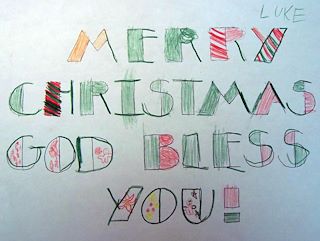 LUKE
MERRY
CHRISTMAS
GOD BLESS
YOU!